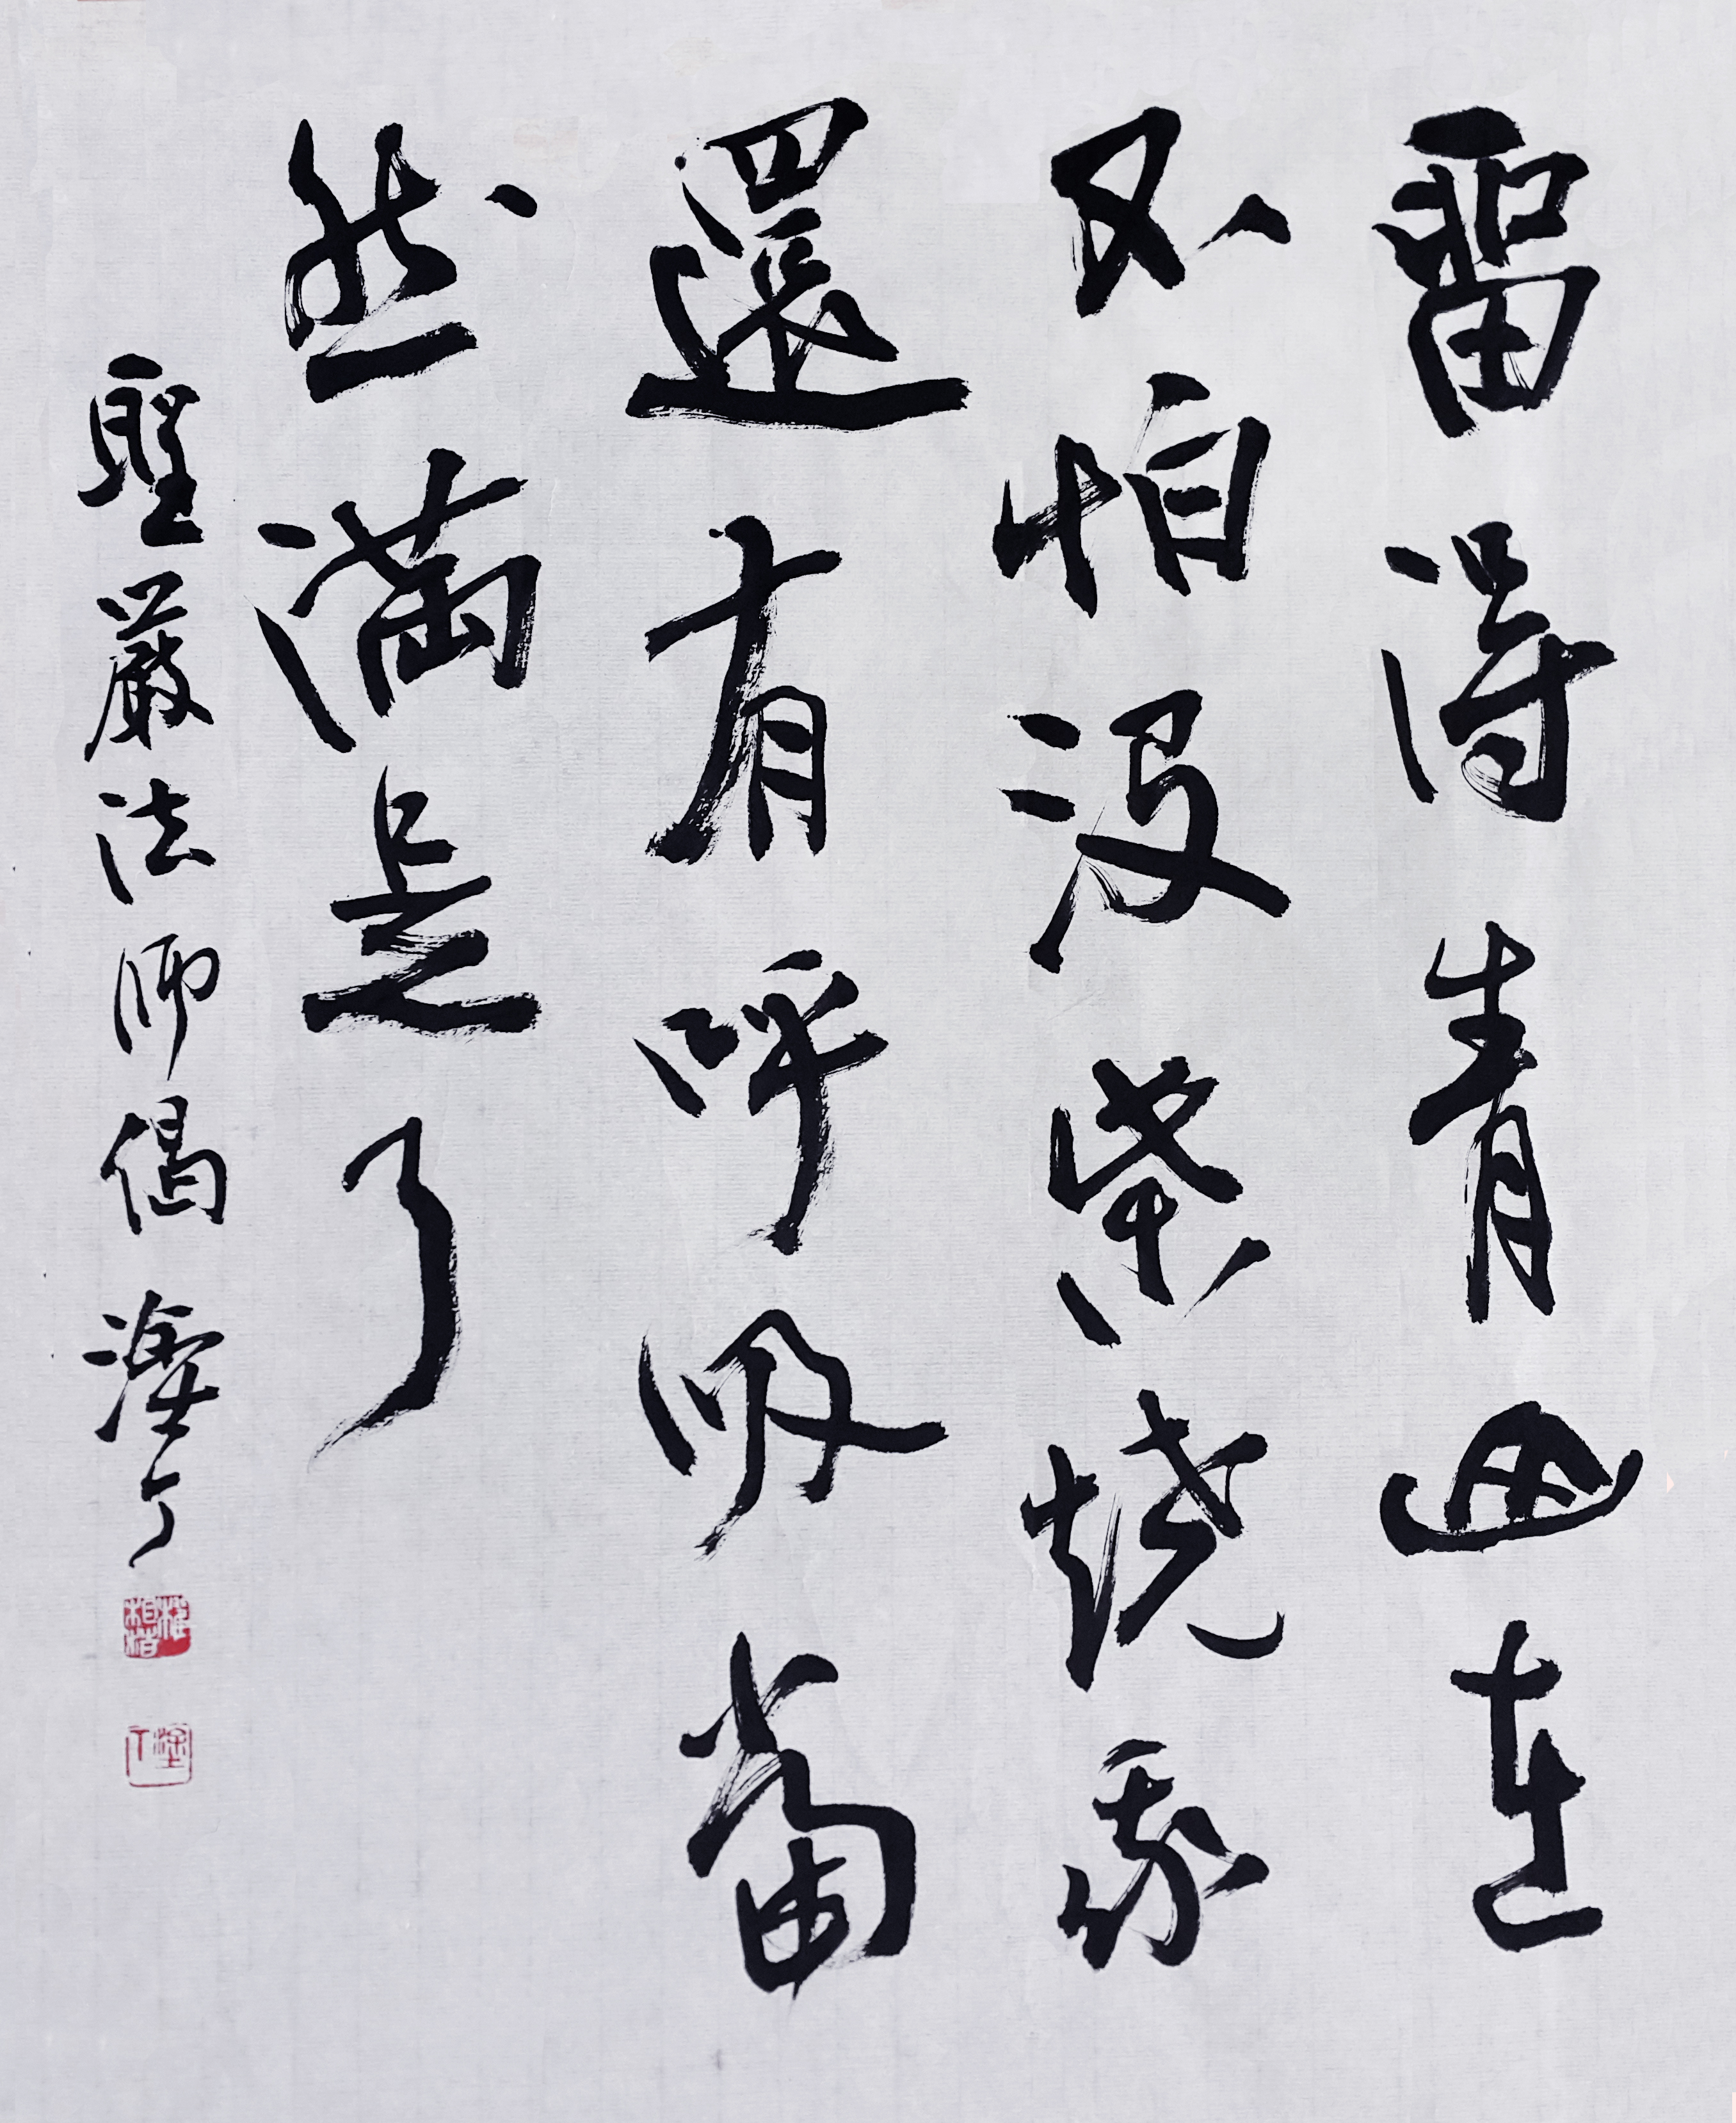 留得青山在
不怕沒柴燒我
還有呼吸當
然滿是了
聖嚴法師偈